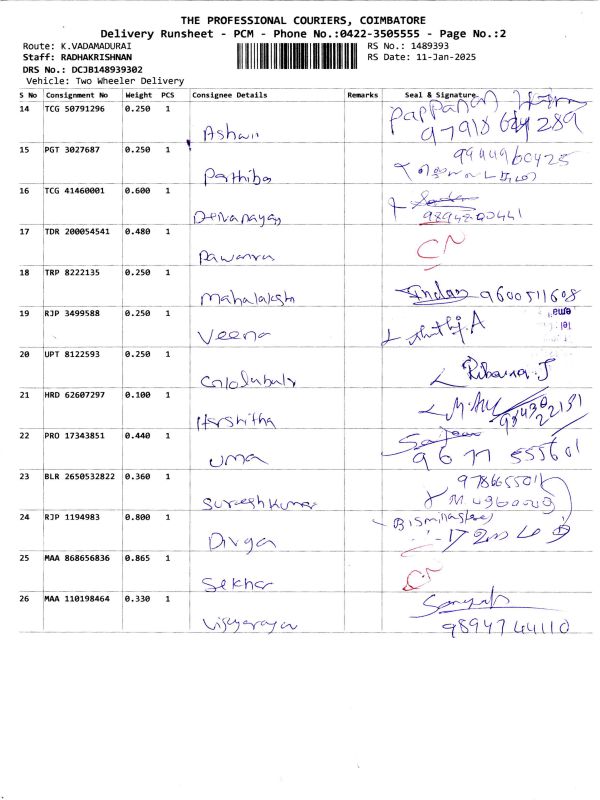 THE PROFESSIONAL COURIERS, COIMBATORE
Delivery Runsheet - PCM - Phone No.:0422-3505555 - Page No.:2
Route: K.VADAMADURAI
RS No.: 1489393
Staff: RADHAKRISHNAN
RS Date: 11-Jan-2025
DRS No.: DCJB148939302
Vehicle: Two Wheeler Delivery
S No Consignment No Weight PCS Consignee Details Remarks Seal & Signature
14 TCG 50791296 0.250 1
Ashwin
15 PGT 3027687 0.250 1
9944960425
Parthiba
16 TCG 41460001 0.600 1
17 TDR 200054541 0.480 1
CN
18 TRP 8222135 0.250 1
Mahalakshmi 9600511608
19 RJP 3499588 0.250 1
Veena
20 UPT 8122593 0.250 1
21 HRD 62607297 0.100 1
Harshitha
22 PRO 17343851 0.440 1
Uma 9677 555601
23 BLR 2650532822 0.360 1
Sureshkumar
24 RJP 1194983 0.800 1
Divya
25 MAA 868656836 0.865 1
CN
Sekhar
26 MAA 110198464 0.330 1
9894744110